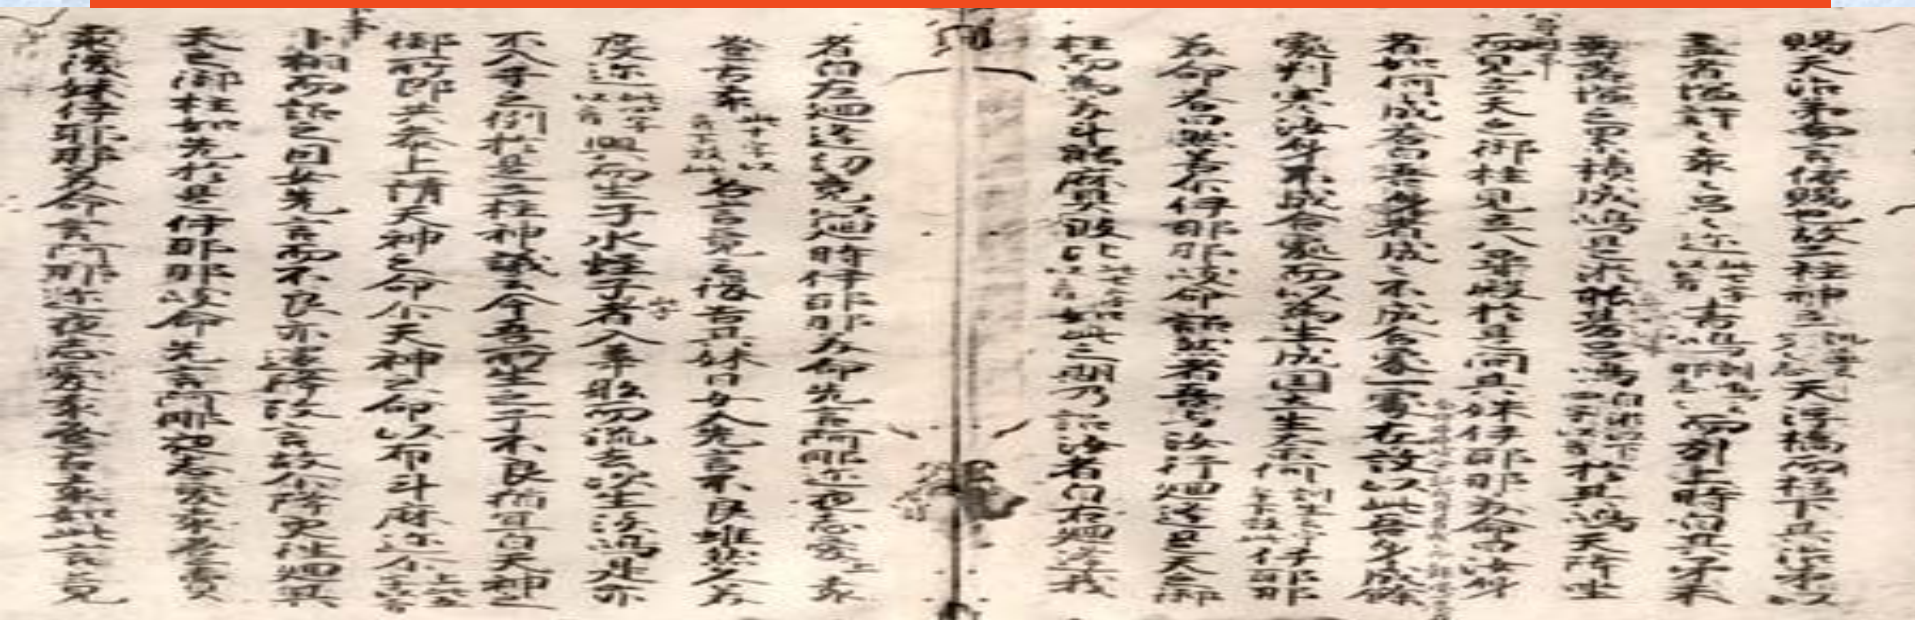 賜天沼矛而言依賜也故二柱神立訓立云多々志天浮橋而指下其沼矛以
畫者塩許々袁々呂々迩此七字以音畫鳴訓鳴云那志々而引上時自其矛末
垂落塩之累積成嶋是淤能碁呂嶋自淤以下四字以音於其嶋天降坐
而見立天之御柱見立八尋殿於是問其妹伊耶那美命曰汝身
者如何成答曰吾身者成々不成合處一處在故以此吾身成餘
處刺塞汝身不成合處而以為生成国土生奈何訓生云宇牟下效此伊耶那
美命答曰然善尒伊耶那岐命詔然者吾与汝行廻逢是天之御
柱而為美斗能麻具波比此七字以音如此之期乃詔汝者自右廻逢我
者自左廻逢約竟廻時伊耶那美命先言阿那迩夜志愛上袁
登古袁此十字以音下效此後伊耶那岐命言竟之後告其妹曰女人先言不良雖然久美
度迩此四字以音興而生子水蛭子此子者入葦船而流去次生淡嶋是亦
不入子之例於是二柱神議云今吾所生之子不良猶宜白天神之
御所即共参上請天神之命尒天神之命以布斗麻迩尒上此五字以音
卜相而詔之因女先言而不良亦還降改言故尒降更往廻其
天之御柱如先於是伊耶那岐命先言阿那迩夜志愛袁登賣
袁後妹伊耶那美命言阿那迩夜志愛袁登古袁如此言竟